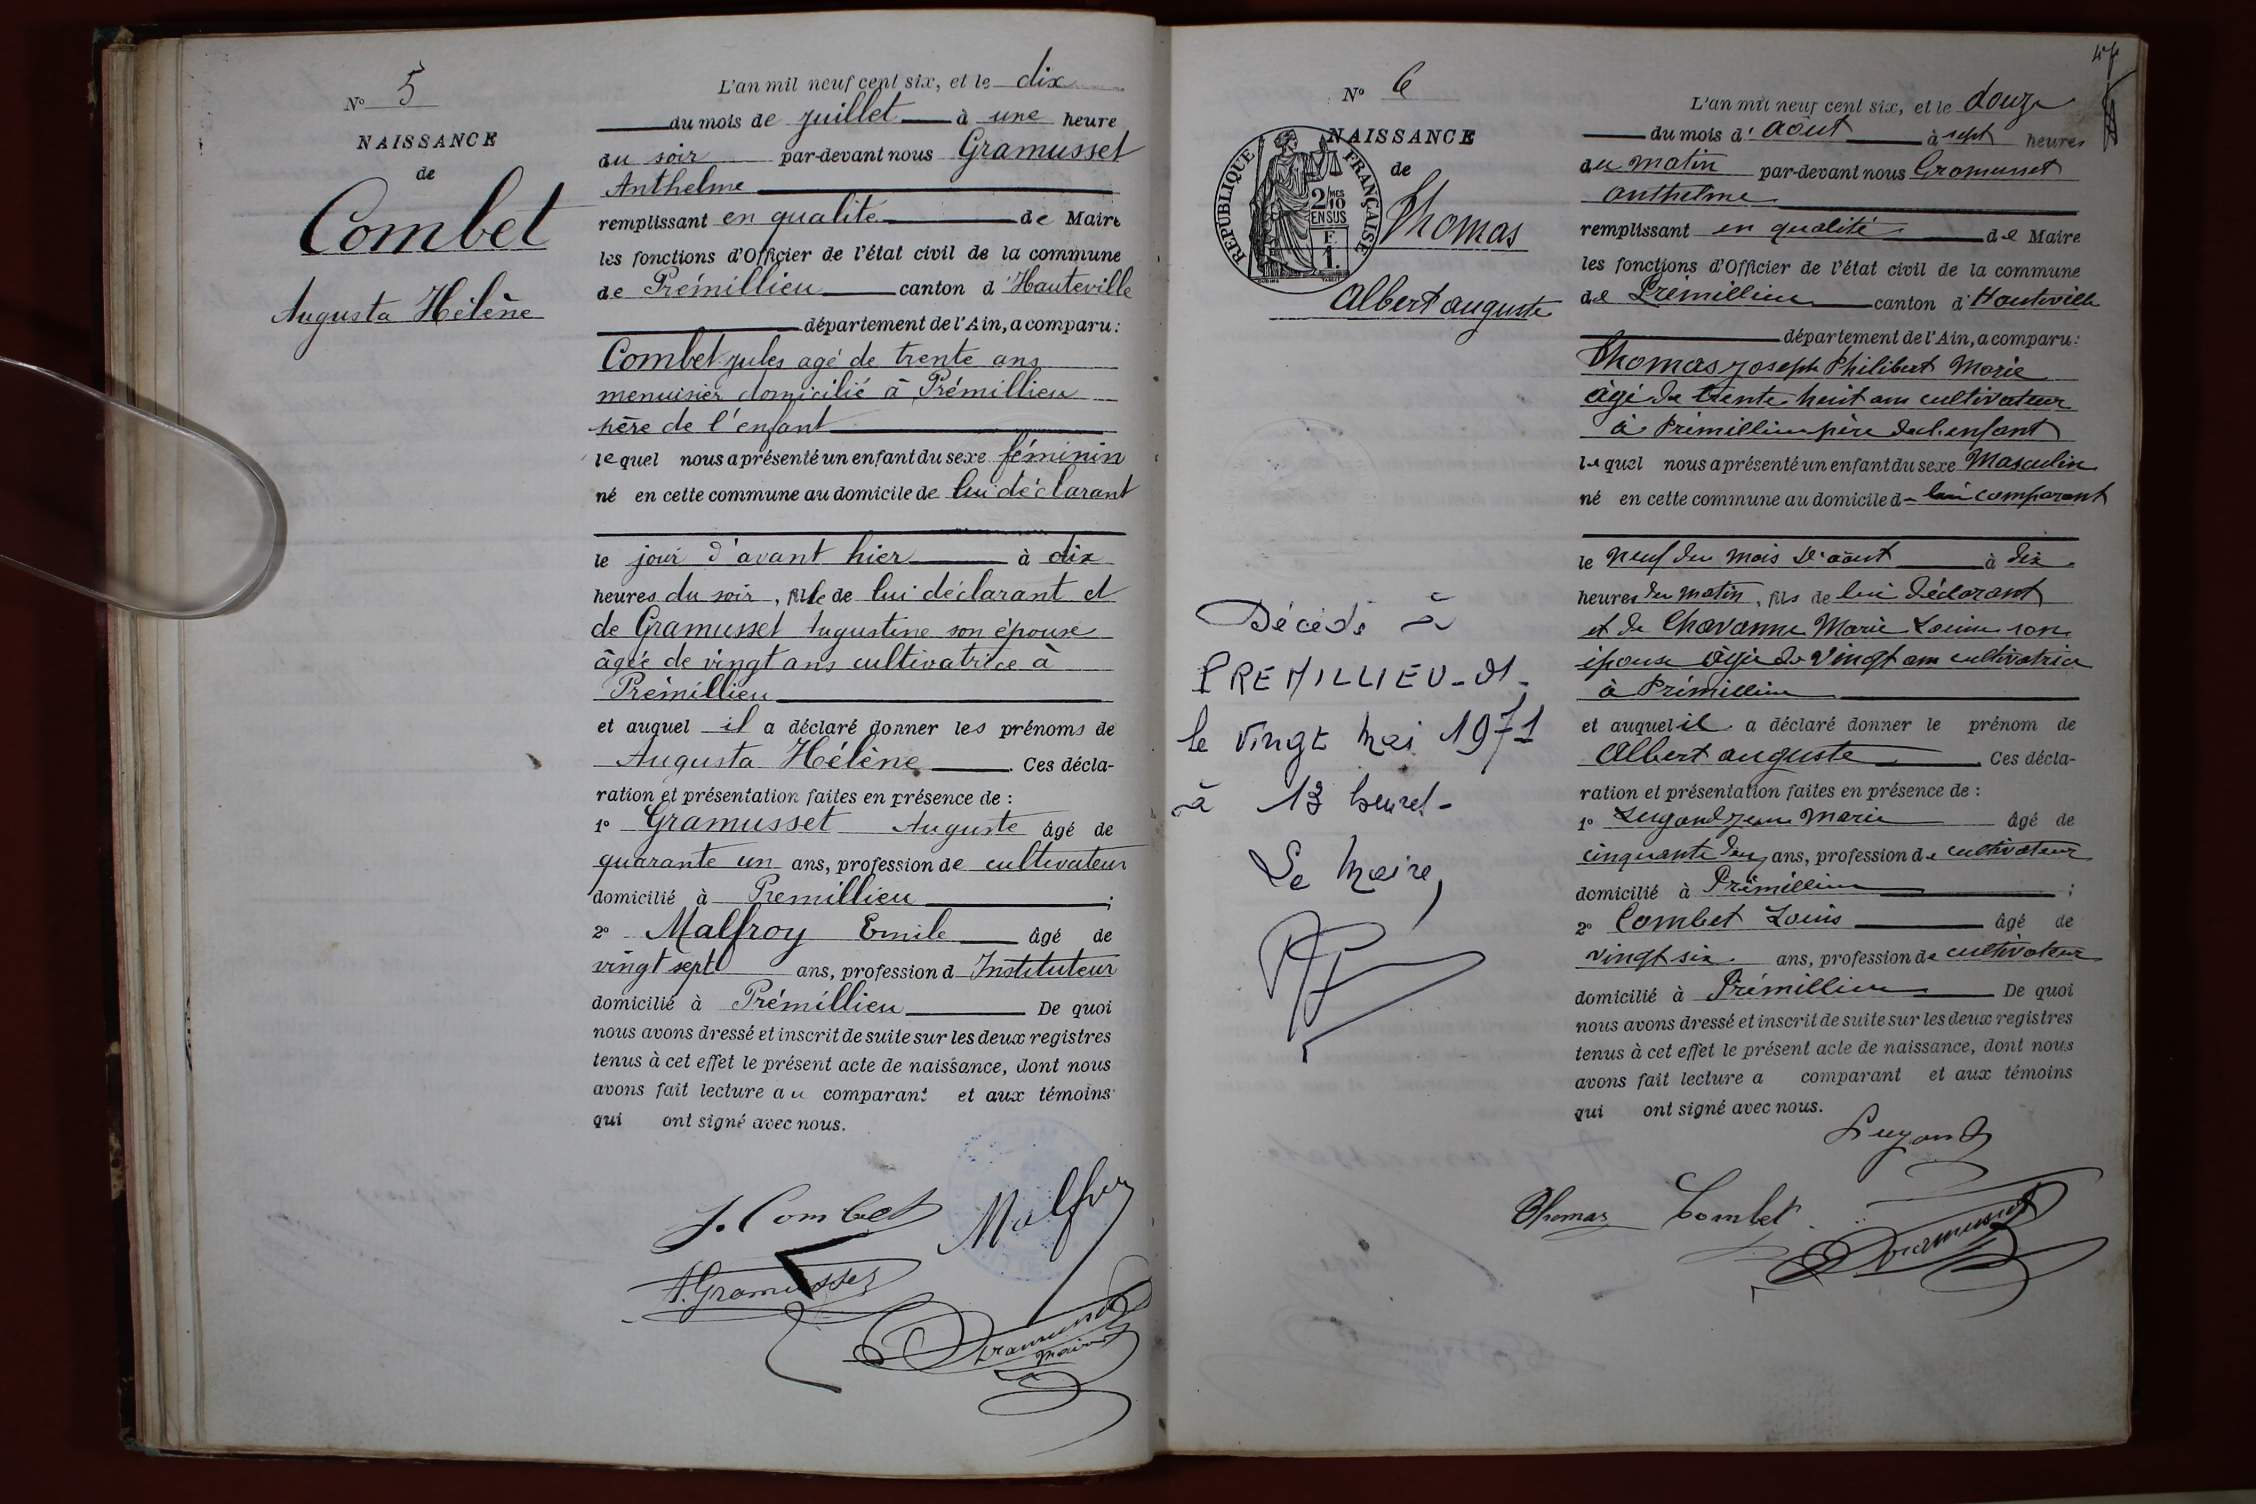 N° 5
NAISSANCE
de
Combet
Augusta Hélène
L'an mil neuf cent six, et le dix
du mois de juillet à une heure
du soir par-devant nous Gramusset
Anthelme
remplissant en qualité de Maire
les fonctions d'Officier de l'état civil de la commune
de Prémillieu canton d'Hauteville
département de l'Ain, a comparu:
Combet Jules agé de trente ans
menuisier domicilié à Prémillieu
père de l'enfant
lequel nous a présenté un enfant du sexe féminin
né en cette commune au domicile de lui déclarant
le jour d'avant hier à dix
heures du soir, fille de lui déclarant et
de Gramusset Augustine son épouse
âgée de vingt ans cultivatrice à
Prémillieu
et auquel il a déclaré donner les prénoms de
Augusta Hélène. Ces décla-
ration et présentation faites en présence de :
1° Gramusset Auguste âgé de
quarante un ans, profession de cultivateur
domicilié à Premillieu ;
2° Malfroy Emile âgé de
vingt sept ans, profession d Instituteur
domicilié à Prémillieu De quoi
nous avons dressé et inscrit de suite sur les deux registres
tenus à cet effet le présent acte de naissance, dont nous
avons fait lecture au comparant et aux témoins
qui ont signé avec nous.
J. Combet Malfroy
A. Gramusset
Gramusset
maire
47
N° 6
NAISSANCE
de
RÉPUBLIQUE FRANÇAISE
2/10 MES
EN SUS
F.
1.
Thomas
Albert auguste
Décédé à
PREMILLIEU-01-
le vingt mai 1971
à 13 heures-
Le Maire,
L'an mil neuf cent six, et le douze
du mois d'août à sept heures
du matin par-devant nous Gramusset
anthelme
remplissant en qualité de Maire
les fonctions d'Officier de l'état civil de la commune
de Prémillieu canton d'Hauteville
département de l'Ain, a comparu:
Thomas Joseph Philibert Marie
âgé de trente huit ans cultivateur
à Prémillieu père de l'enfant
lequel nous a présenté un enfant du sexe Masculin
né en cette commune au domicile de lui comparant
le neuf du mois d'août à dix
heures du matin, fils de lui déclarant
et de Chavanne Marie Louise son
épouse âgée de vingt ans cultivatrice
à Prémillieu
et auquel il a déclaré donner le prénom de
Albert auguste. Ces décla-
ration et présentation faites en présence de :
1° Lugand Jean Marie âgé de
cinquante deux ans, profession de cultivateur
domicilié à Prémillieu ;
2° Combet Louis âgé de
vingt six ans, profession de cultivateur
domicilié à Prémillieu De quoi
nous avons dressé et inscrit de suite sur les deux registres
tenus à cet effet le présent acte de naissance, dont nous
avons fait lecture a comparant et aux témoins
qui ont signé avec nous.
Lugand
Thomas Combet
Gramusset